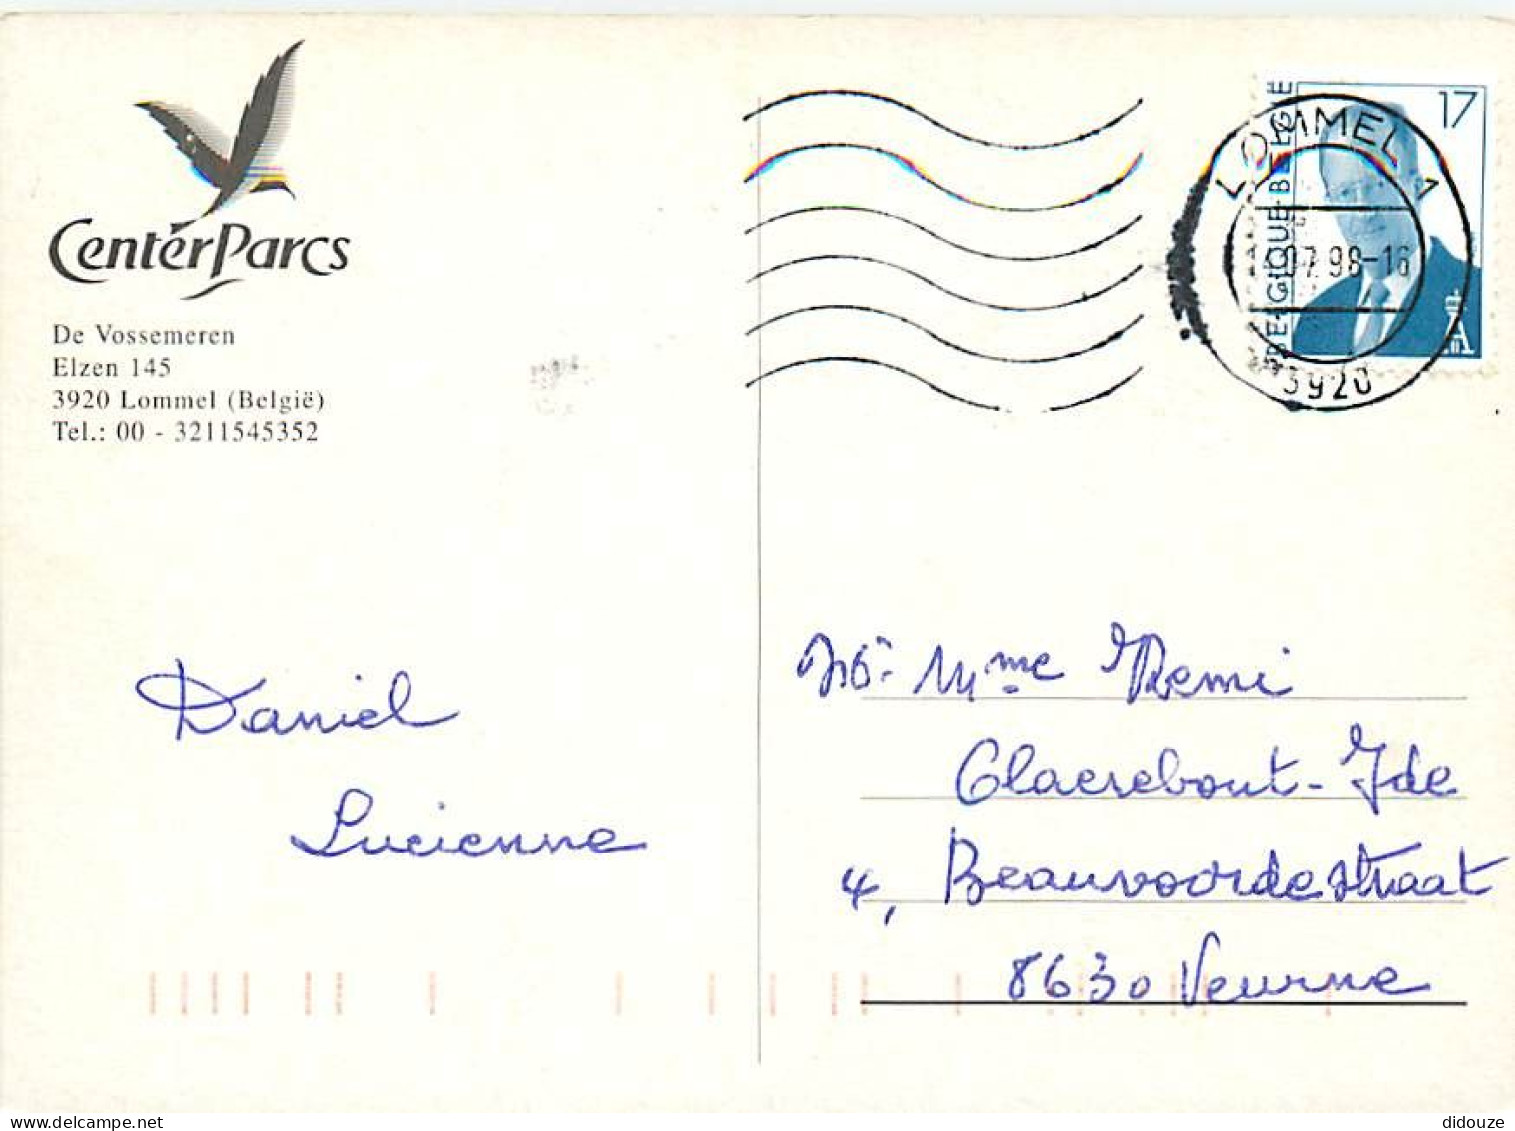 CenterParcs
De Vossemeren
Elzen 145
3920 Lommel (België)
Tel.: 00 - 3211545352
Daniel
Lucienne
BELGIQUE·BELGIË
17
LOMMEL 1
07 98-16
3920
Mme Remi
Claerebout - Ide
4, Beauvoordestraat
8630 Veurne
delcampe.net
didouze